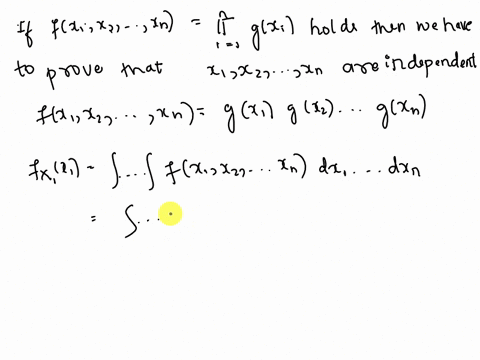 If f(x₁,x₂,..,xₙ) = ∏ⁿᵢ₌₁ g(xᵢ) holds then we have
to prove that x₁,x₂,...,xₙ are independent
f(x₁,x₂,...,xₙ) = g(x₁) g(x₂)... g(xₙ)
f_X₁(x₁) = ∫....∫ f(x₁,x₂,...xₙ) dx₁...dxₙ
= ∫...